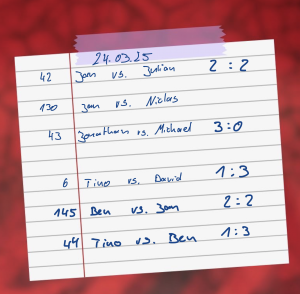 24.03.25
42 Jan vs. Julian 2 : 2
130 Jan vs. Niclas
43 Jonathan vs. Michael 3:0
6 Tino vs. David 1:3
145 Ben vs. Jan 2:2
44 Tino vs. Ben 1:3